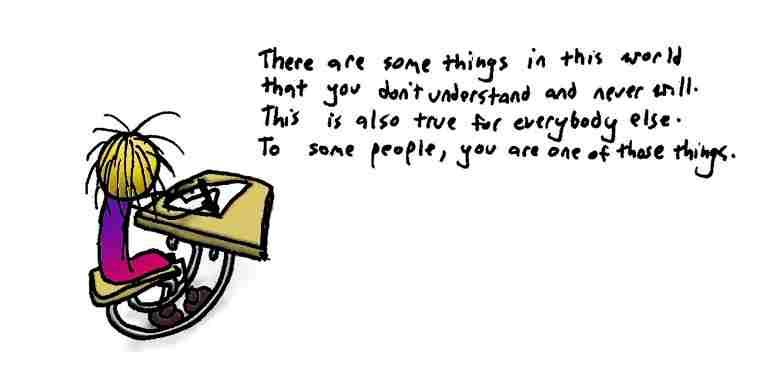 There are some things in this world
that you don't understand and never will.
This is also true for everybody else.
To some people, you are one of those things.